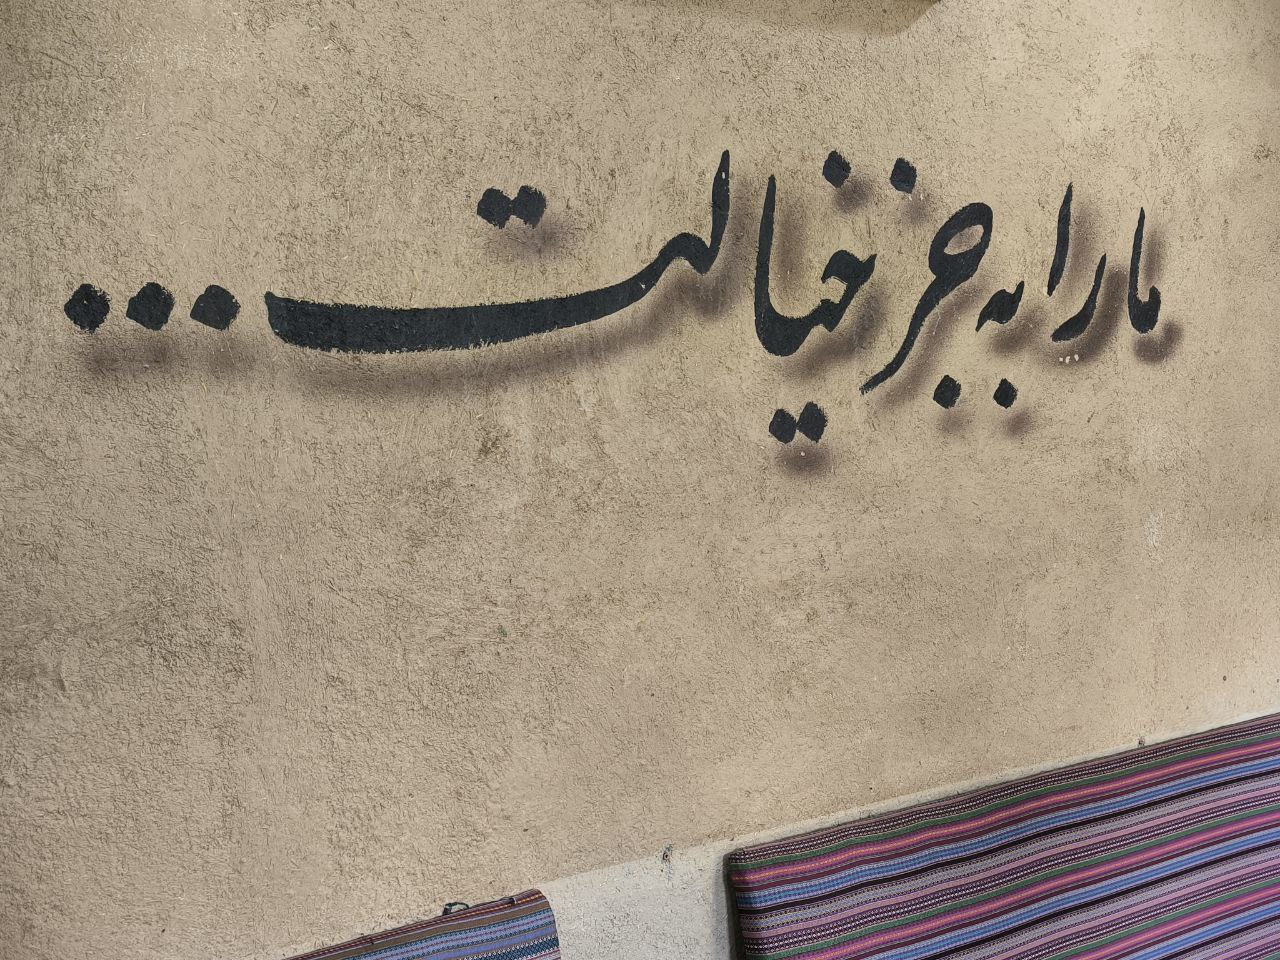 ما را به جز خیالت...